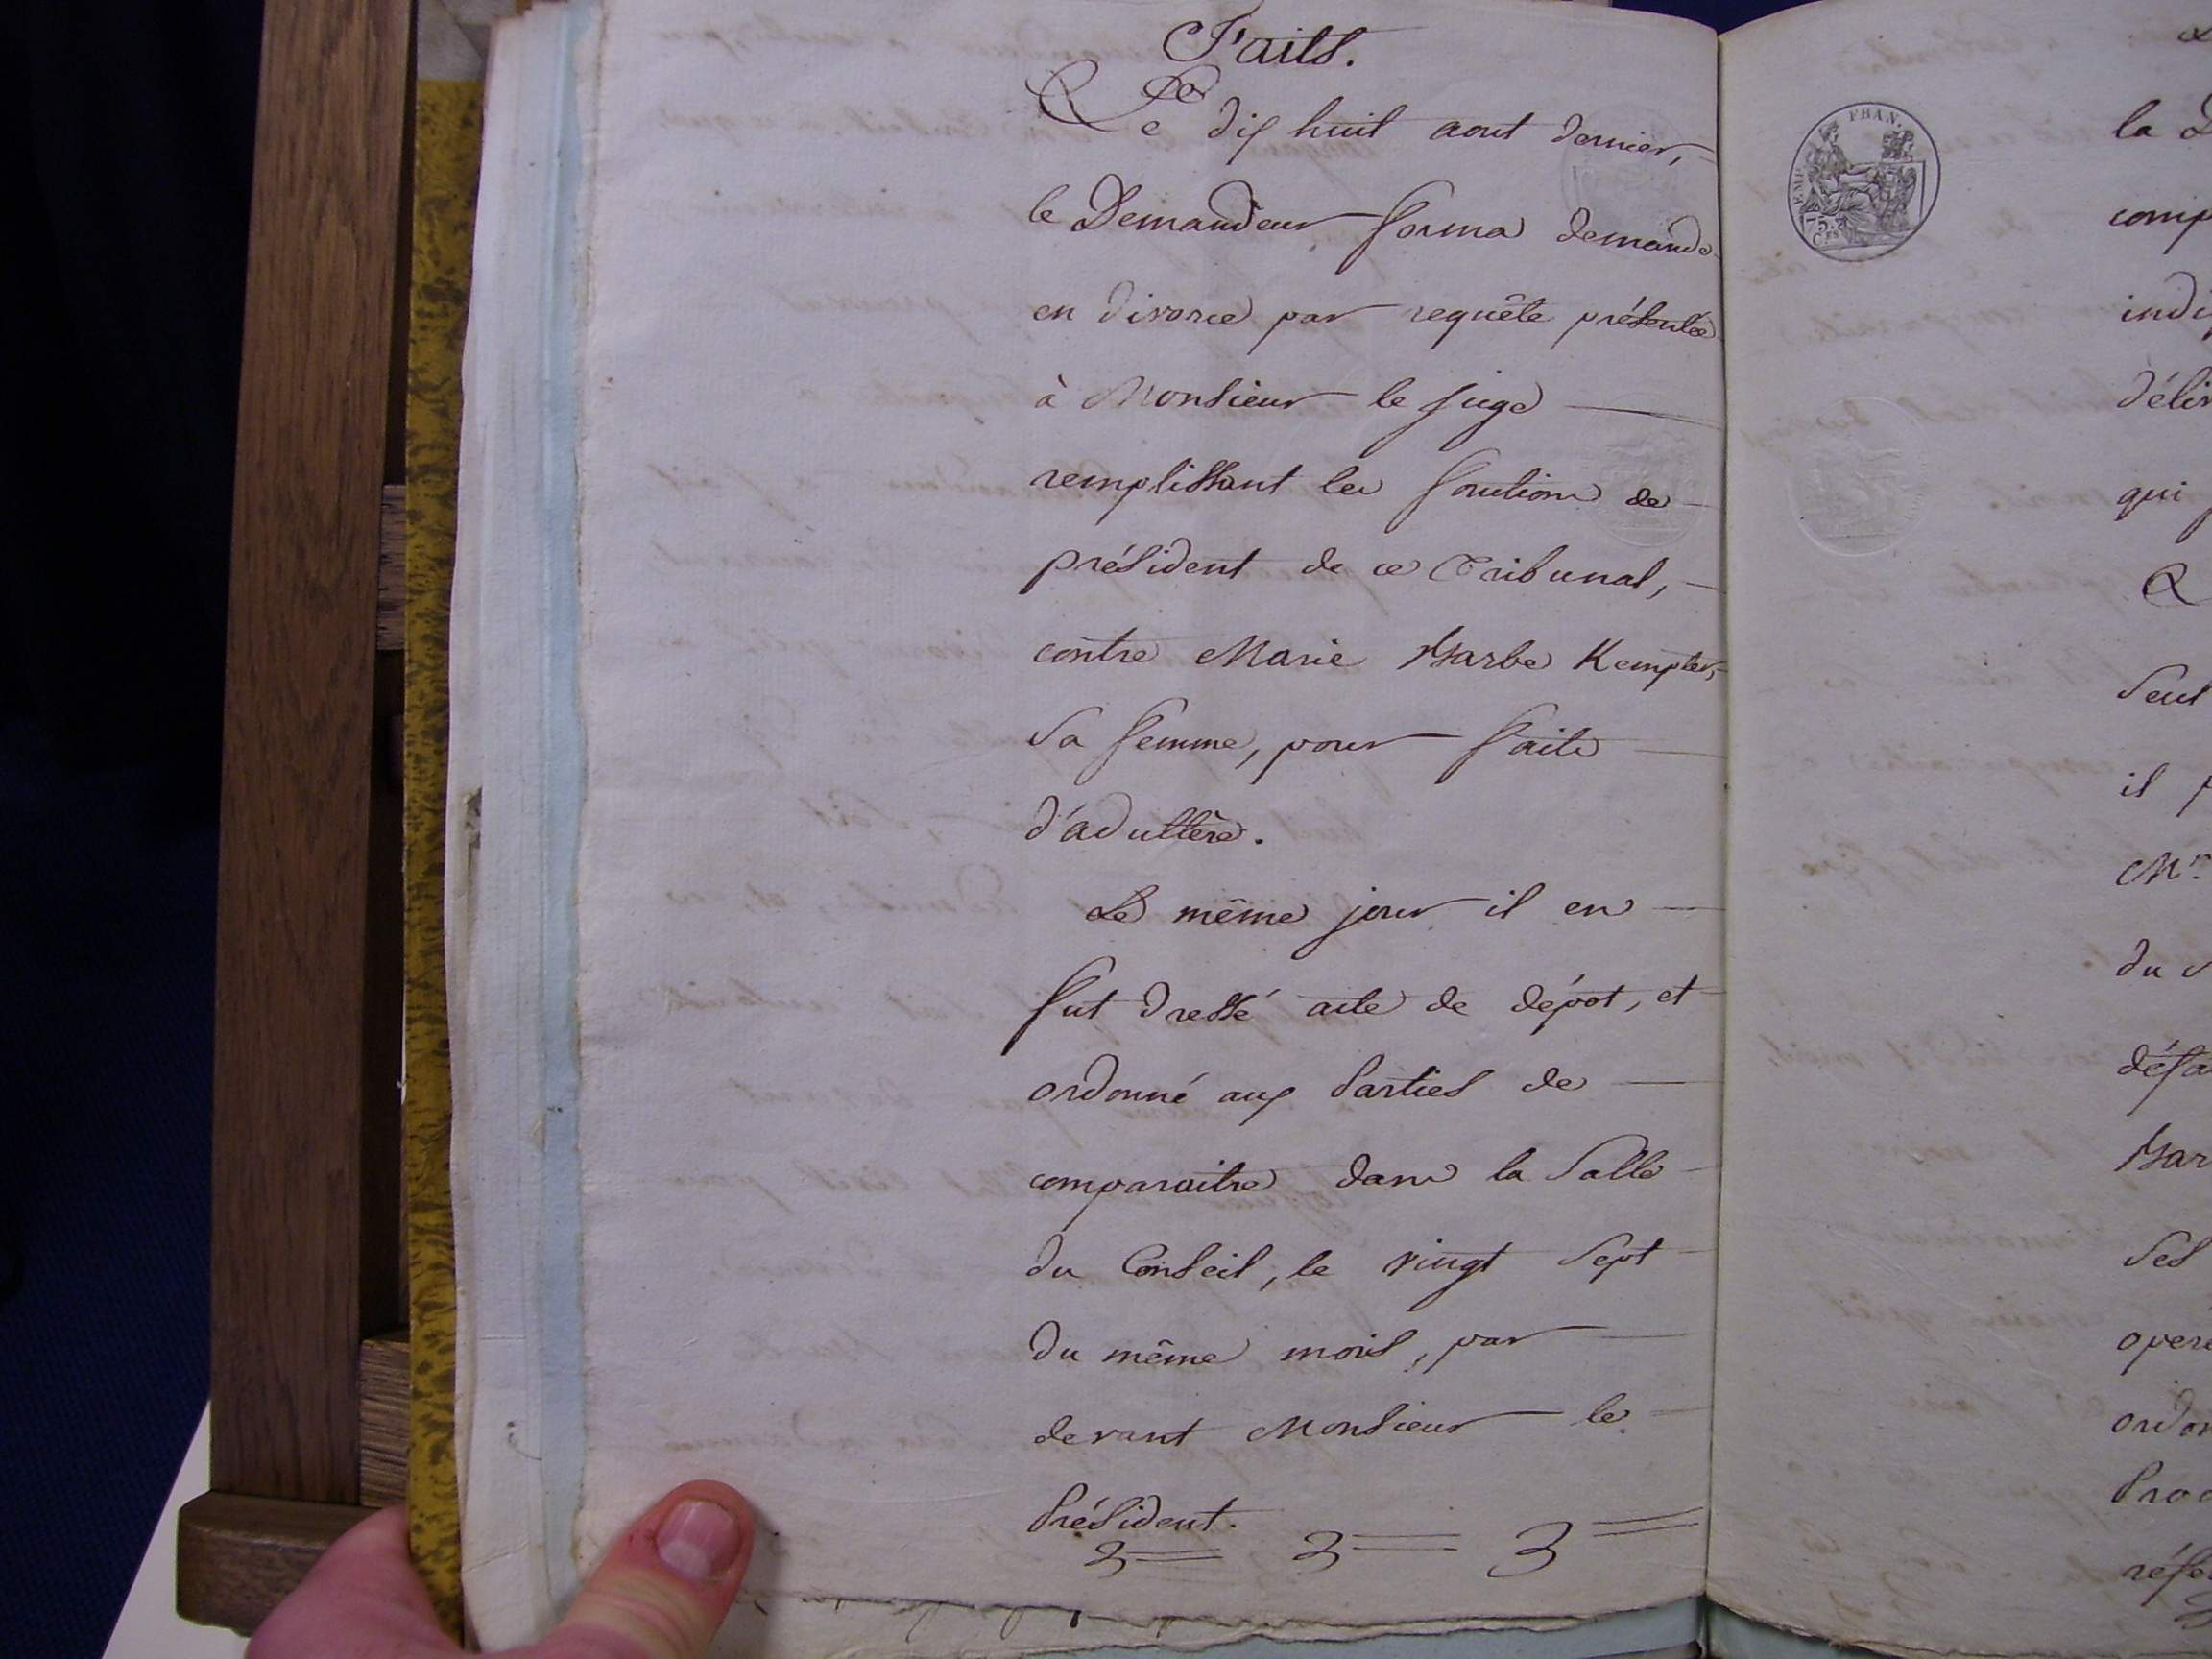 Faits.
Le dix huit aout dernier,
le Demandeur forma demande
en divorce par requête présentée
à Monsieur le juge
remplissant les fonctions de
président de ce Tribunal,
contre Marie Barbe Kempter,
sa femme, pour faits
d'adultère.
Le même jour il en
fut dressé acte de dépot, et
ordonné aux Parties de
comparaitre dans la Salle
du Conseil, le vingt sept
du même mois, par
devant Monsieur le
Président.
EMP. FRAN.
75.
Ces
la D
comp
indi
déliv
qui
Seul
il p
Mr.
du
défa
Bar
Ses
opera
ordon
Proc
réfé